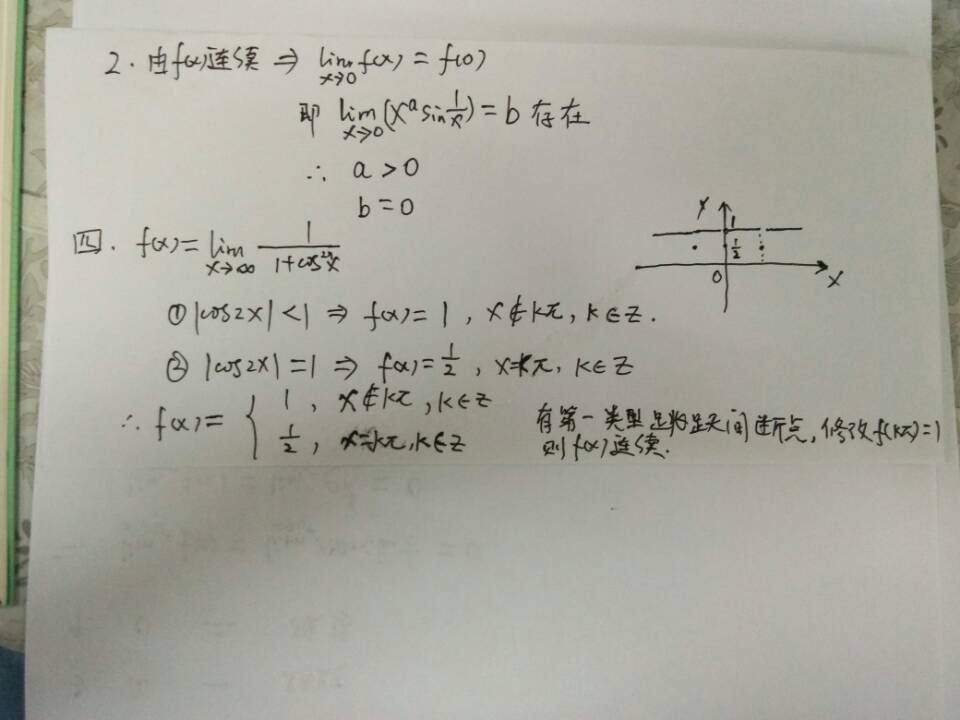 2. 由f(x)连续 ⇒ lim x→0 f(x) = f(0)
即 lim x→0 (x^a sin 1/x) = b 存在
∴ a > 0
b = 0
四. f(x) = lim x→∞ 1/(1+cos^{2x}x)
y
1
1/2
0
x
① |cos2x| < 1 ⇒ f(x) = 1, x∉kπ, k∈Z.
② |cos2x| = 1 ⇒ f(x) = 1/2, x=kπ, k∈Z
∴ f(x) = { 1, x∉kπ, k∈Z
1/2, x=kπ, k∈Z
有第一类型 间断点, 修改f(kπ)=1
则f(x)连续.